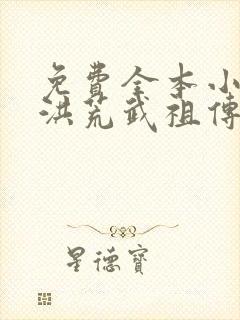 免費全本小
洪荒武祖傳
星德寶